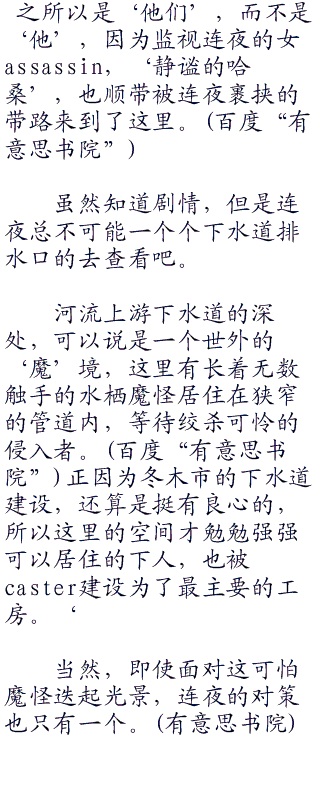 之所以是‘他们’，而不是
‘他’，因为监视连夜的女
assassin，‘静谧的哈
桑’，也顺带被连夜裹挟的
带路来到了这里。(百度“有
意思书院”)
虽然知道剧情，但是连
夜总不可能一个个下水道排
水口的去查看吧。
河流上游下水道的深
处，可以说是一个世外的
‘魔’境，这里有长着无数
触手的水栖魔怪居住在狭窄
的管道内，等待绞杀可怜的
侵入者。(百度“有意思书
院”)正因为冬木市的下水道
建设，还算是挺有良心的，
所以这里的空间才勉勉强强
可以居住的下人，也被
caster建设为了最主要的工
房。‘
当然，即使面对这可怕
魔怪迭起光景，连夜的对策
也只有一个。(有意思书院)